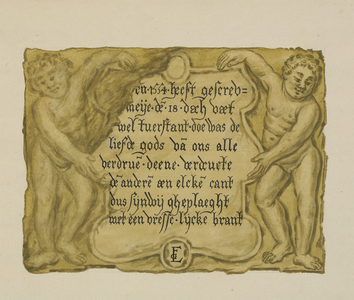 en 1554 heeft gescrev=
meije·dē·18·dach væt
wel tuerstant·doe was de
liefde gods vā ons alle
verdruē·deene·verdructe
dē anderē æn elckē cant
dus sijndwij gheplaeght
met een vresse·lijcke brant